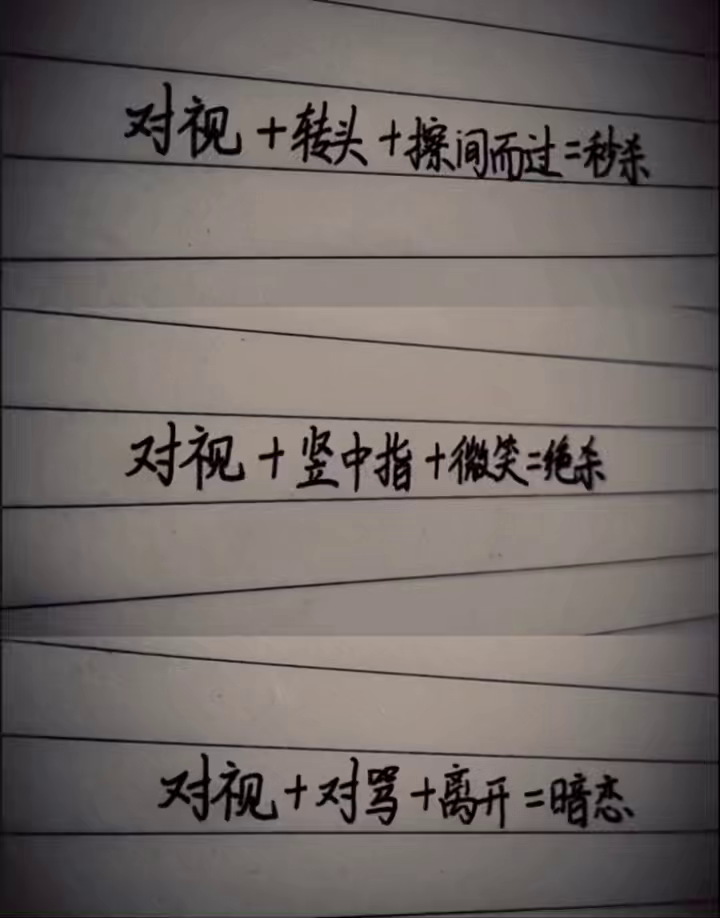 对视+转头+擦间而过=秒杀
对视+竖中指+微笑=绝杀
对视+对骂+离开=暗恋